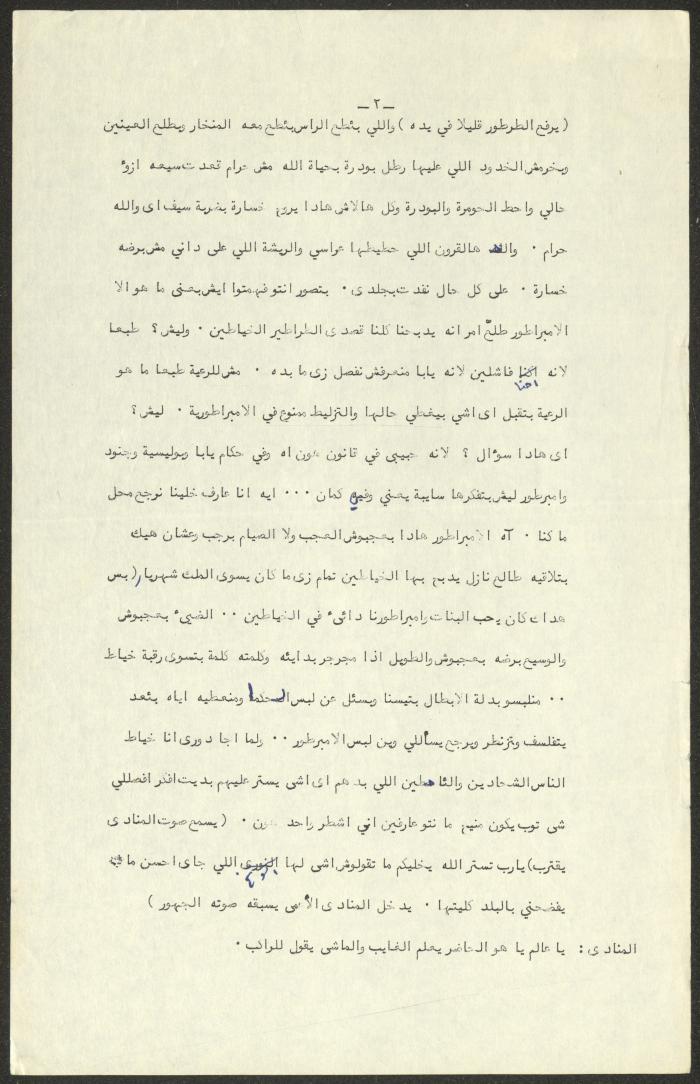 ـ ٢ ـ
( يرفع الطرطور قليلا في يده ) واللي بئطع الراس بئطع معه المنخار وبطلع العينين
وبخرمش الخدود اللي عليها رطل بودرة بحياة الله مش حرام قعدت سيعه ازوء
حالي واحط الحومرة والبودرة وكل هالاش هادا يروح خسارة بضربة سيف اى والله
حرام . والله هالقرون اللي حطيطها عراسي والريشة اللي على داني مش برضه
خسارة . على كل حال نفدت بجلدى . بتصور انتو فهمتوا ايش بعنى ما هو الا
الامبراطور طلّع امر انه يدبحنا كلنا قصدى الطراطير الخياطين . وليش ؟ طبعا
لانه احنا فاشلين لانه يابا منعرفش نفصل زى ما بده . مش للرعية طبعا ما هو
الرعية بتقبل اى اشي بيغطي حالها والتزليط ممنوع في الامبراطورية . ليش ؟
اى هادا سوءال ؟ لانه حبيبى في قانون هون اه وفي حكام يابا وبوليسية وجنود
وامبرطور ليش بتفكرها سايبة يعني وفيه كمان ... ايه انا عارف خلينا نرجع محل
ما كنا . آه الامبراطور هادا بعجبوش العجب ولا الصيام برجب وعشان هيك
بتلاقيه طالع نازل يدبح بها الخياطين تمام زى ما كان يسوى الملك شهريار ( بس
هداك كان يحب البنات وامبراطورنا دائىء في الخياطين .. الضيىء بعجبوش
والوسيع برضه بعجبوش والطويل اذا مجرجر بدايئه وكلمته كلمة بتسوى رقبة خياط
.. منلبسو بدلة الابطال بتيسنا وبسئل عن لبس الحكما ومنعطيه اياه بئعد
يتفلسف وتزنطر وبرجع يسأللي وين لبس الامبرطور .. ولما اجا دورى انا خياط
الناس الشحادين والئاعطين اللي بدهم اى اشى يستر عليهم بديت افكر افصللي
شى توب يكون منيح ما نتو عارفين اني اشطر واحد هون . ( يسمع صوت المنادى
يقترب) يارب تستر الله يخليكم ما تقولوش اشى لها اللي جاى احسن ما
يفضحني بالبلد كليتها . يدخل المنادى الأعمى يسبقه صوته الجهور )
المنادى : يا عالم يا هو الحاضر يعلم الغايب والماشى يقول للراكب .